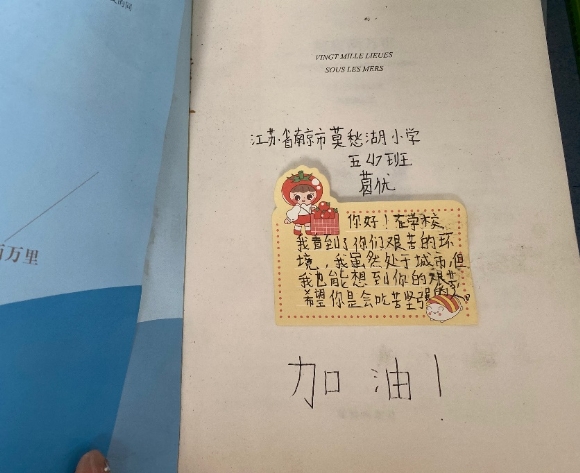 VINGT MILLE LIEUES
SOUS LES MERS
江苏省南京市莫愁湖小学
五(4)班
葛优
你好！在学校
我看到了你们艰苦的环
境，我虽然处于城市，但
我也能想到你的艰苦，
希望你是会吃苦坚强的
加油！
百万里